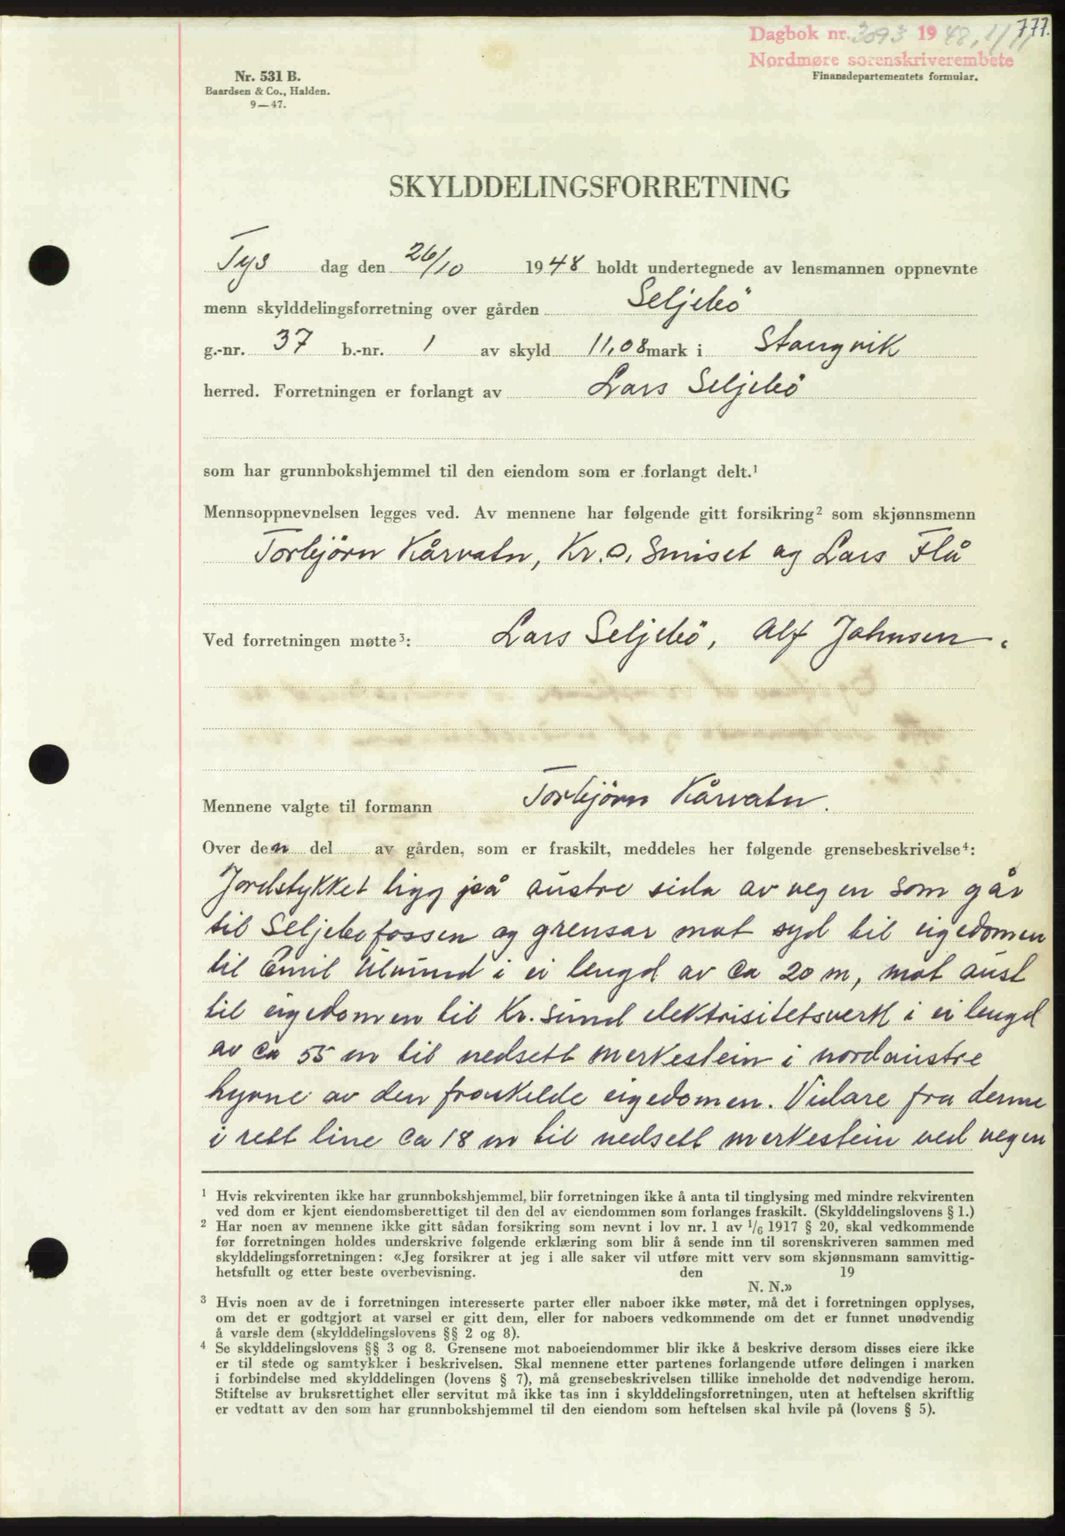 777.
Dagbok nr. 3093 1948, 1/11
Nordmøre sorenskriverembete
Nr. 531 B.
Baardsen & Co., Halden.
9—47.
Finansdepartementets formular.
SKYLDDELINGSFORRETNING
Tys dag den 26/10 1948 holdt undertegnede av lensmannen oppnevnte
menn skylddelingsforretning over gården Seljebö
g.-nr. 37 b.-nr. 1 av skyld 11,08 mark i Stangvik
herred. Forretningen er forlangt av Lars Seljebö
som har grunnbokshjemmel til den eiendom som er forlangt delt.¹
Mennsoppnevnelsen legges ved. Av mennene har følgende gitt forsikring² som skjønnsmenn
Torbjörn Kårvatn, Kr. O. Smiset og Lars Flå
Ved forretningen møtte³: Lars Seljebö, Alf Johnsen.
Mennene valgte til formann Torbjörn Kårvatn.
Over den del av gården, som er fraskilt, meddeles her følgende grensebeskrivelse⁴:
Jordstykket ligg på austre sida av vegen som går
til Seljebofossen og grensar mot syd til eigedomen
til Emil Ulvund i ei lengd av ca 20 m, mot aust
til eigedomen til Kr. sund elektrisitetsverk i ei lengd
av ca 55 m til nedsett merkestein i nordaustre
hyrne av den fraskilde eigedomen. Vidare fra denne
i rett line ca 18 m til nedsett merkestein ved vegen
¹ Hvis rekvirenten ikke har grunnbokshjemmel, blir forretningen ikke å anta til tinglysing med mindre rekvirenten
ved dom er kjent eiendomsberettiget til den del av eiendommen som forlanges fraskilt. (Skylddelingslovens § 1.)
² Har noen av mennene ikke gitt sådan forsikring som nevnt i lov nr. 1 av 1/6 1917 § 20, skal vedkommende
før forretningen holdes underskrive følgende erklæring som blir å sende inn til sorenskriveren sammen med
skylddelingsforretningen: «Jeg forsikrer at jeg i alle saker vil utføre mitt verv som skjønnsmann samvittig-
hetsfullt og etter beste overbevisning. den 19
N. N.»
³ Hvis noen av de i forretningen interesserte parter eller naboer ikke møter, må det i forretningen opplyses,
om det er godtgjort at varsel er gitt dem, eller for naboers vedkommende om det er funnet unødvendig
å varsle dem (skylddelingslovens §§ 2 og 8).
⁴ Se skylddelingslovens §§ 3 og 8. Grensene mot naboeiendommer blir ikke å beskrive dersom disses eiere ikke
er til stede og samtykker i beskrivelsen. Skal mennene etter partenes forlangende utføre delingen i marken
i forbindelse med skylddelingen (lovens § 7), må grensebeskrivelsen tillike inneholde det nødvendige herom.
Stiftelse av bruksrettighet eller servitut må ikke tas inn i skylddelingsforretningen, uten at heftelsen skriftlig
er vedtatt av den som har grunnbokshjemmel til den eiendom som heftelsen skal hvile på (lovens § 5).